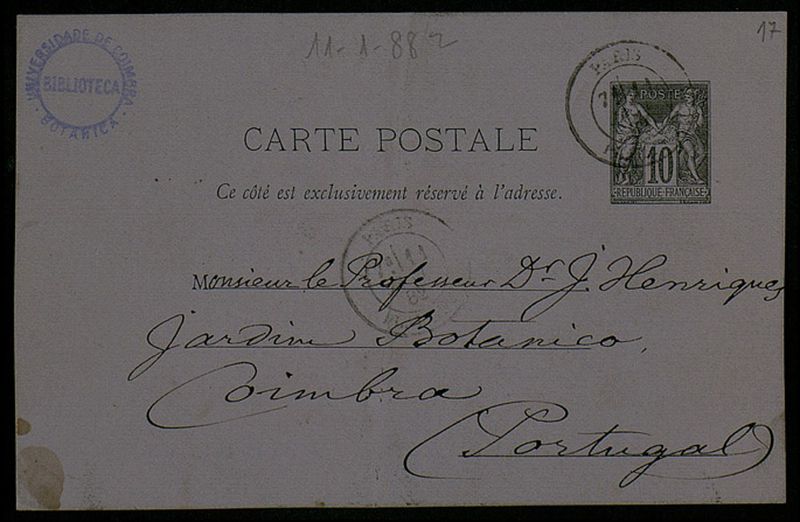 11-1-88 2
17
UNIVERSIDADE DE COIMBRA
BIBLIOTECA
BOTANICA
PARIS
POSTE
10
REPUBLIQUE FRANÇAISE
CARTE POSTALE
Ce côté est exclusivement réservé à l'adresse.
PARIS
Monsieur le Professeur Dr. J. Henriques
Jardim Botanico,
Coimbra
(Portugal)